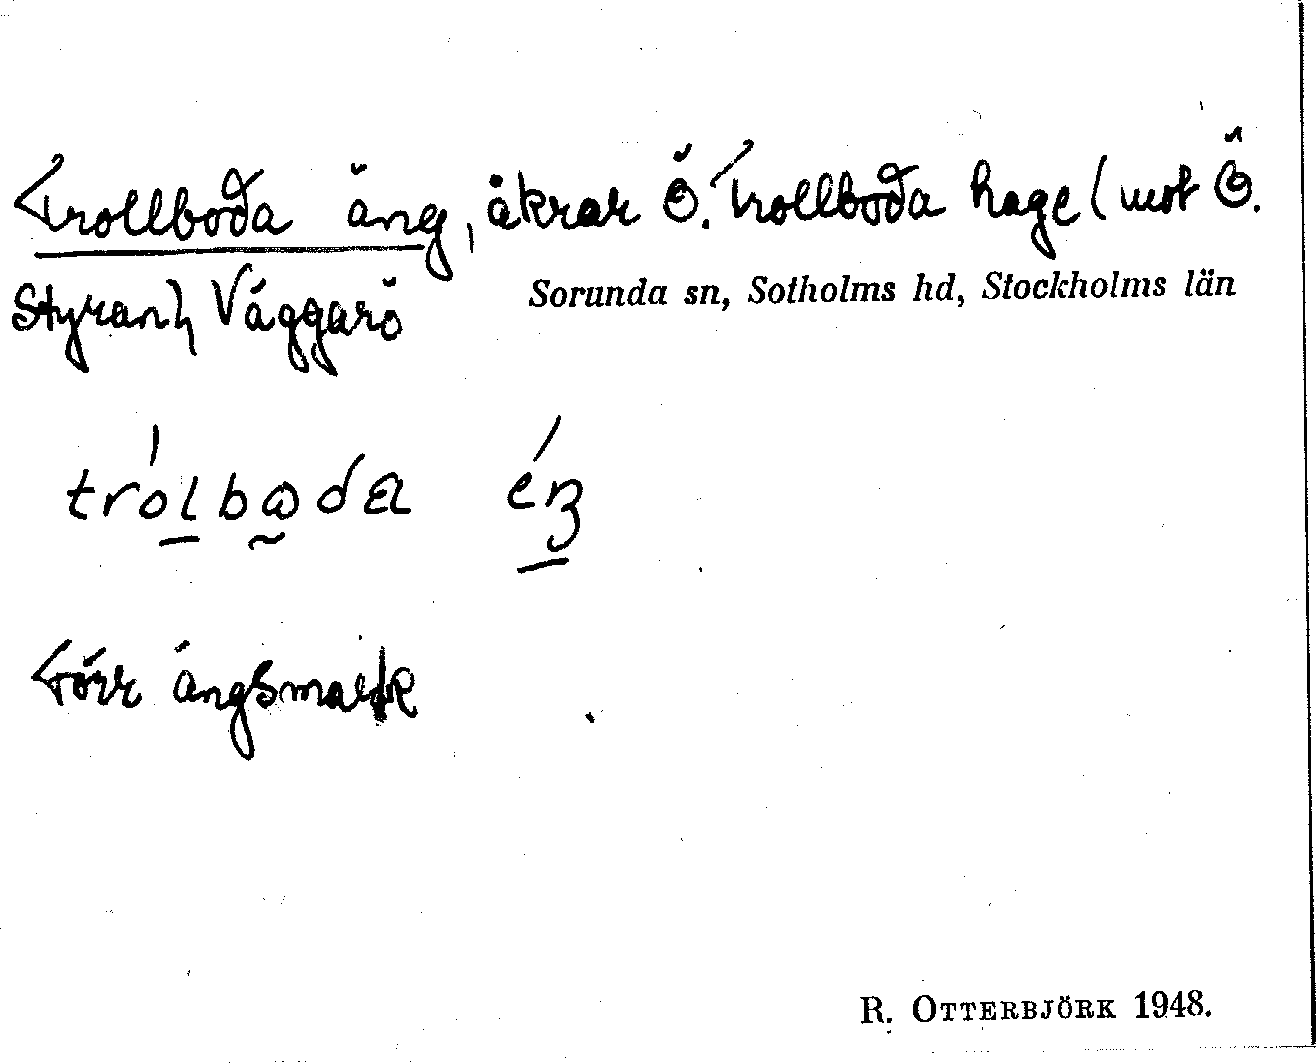 Trollboda äng, åkrar Ö. Trollboda hage (mot Ö.
Styran), Väggarö
Sorunda sn, Sotholms hd, Stockholms län
trólbωda éŋ
Förr ängsmark
R. OTTERBJÖRK 1948.